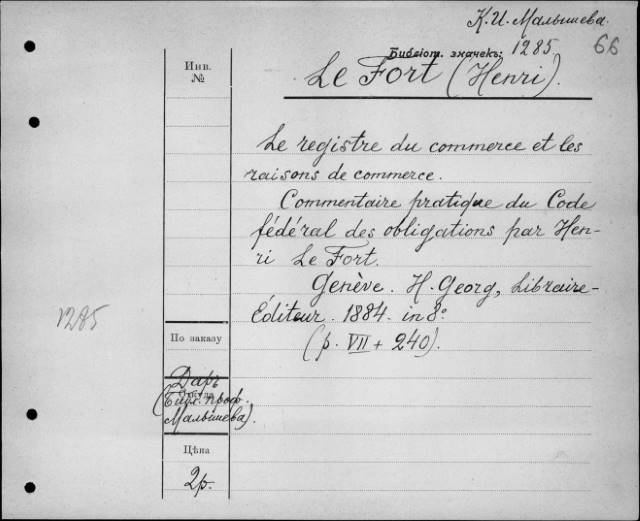 К. И. Малышева.
Библіот. значекъ: 1285
66
Le Fort (Henri).
Инв.
№
Le registre du commerce et les
raisons de commerce.
Commentaire pratique du Code
fédéral des obligations par Hen-
ri Le Fort.
Genève. H. Georg, Libraire-
Éditeur. 1884. in 8°
(p. VII + 240).
1285
По заказу
Даръ
Откуда
(Библ. проф.
Малышева).
Цѣна
2р.